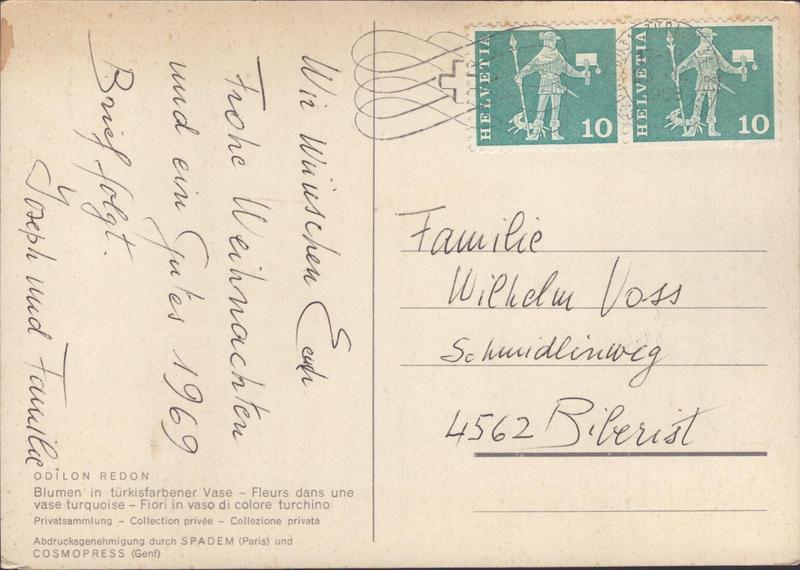 Wir Wünschen Euch
Frohe Weihnachten
und ein Gutes 1969
Brief folgt.
Joseph und Familie
ODILON REDON
Blumen in türkisfarbener Vase – Fleurs dans une
vase turquoise – Fiori in vaso di colore turchino
Privatsammlung – Collection privée – Collezione privata
Abdrucksgenehmigung durch SPADEM (Paris) und
COSMOPRESS (Genf)
HELVETIA 10
HELVETIA 10
Familie
Wilhelm Voss
Schmidlinweg
4562 Biberist